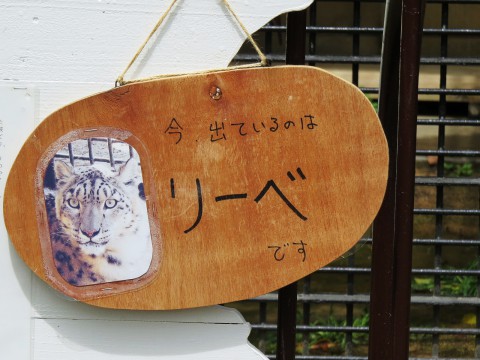 今、出ているのは
リーベ
です